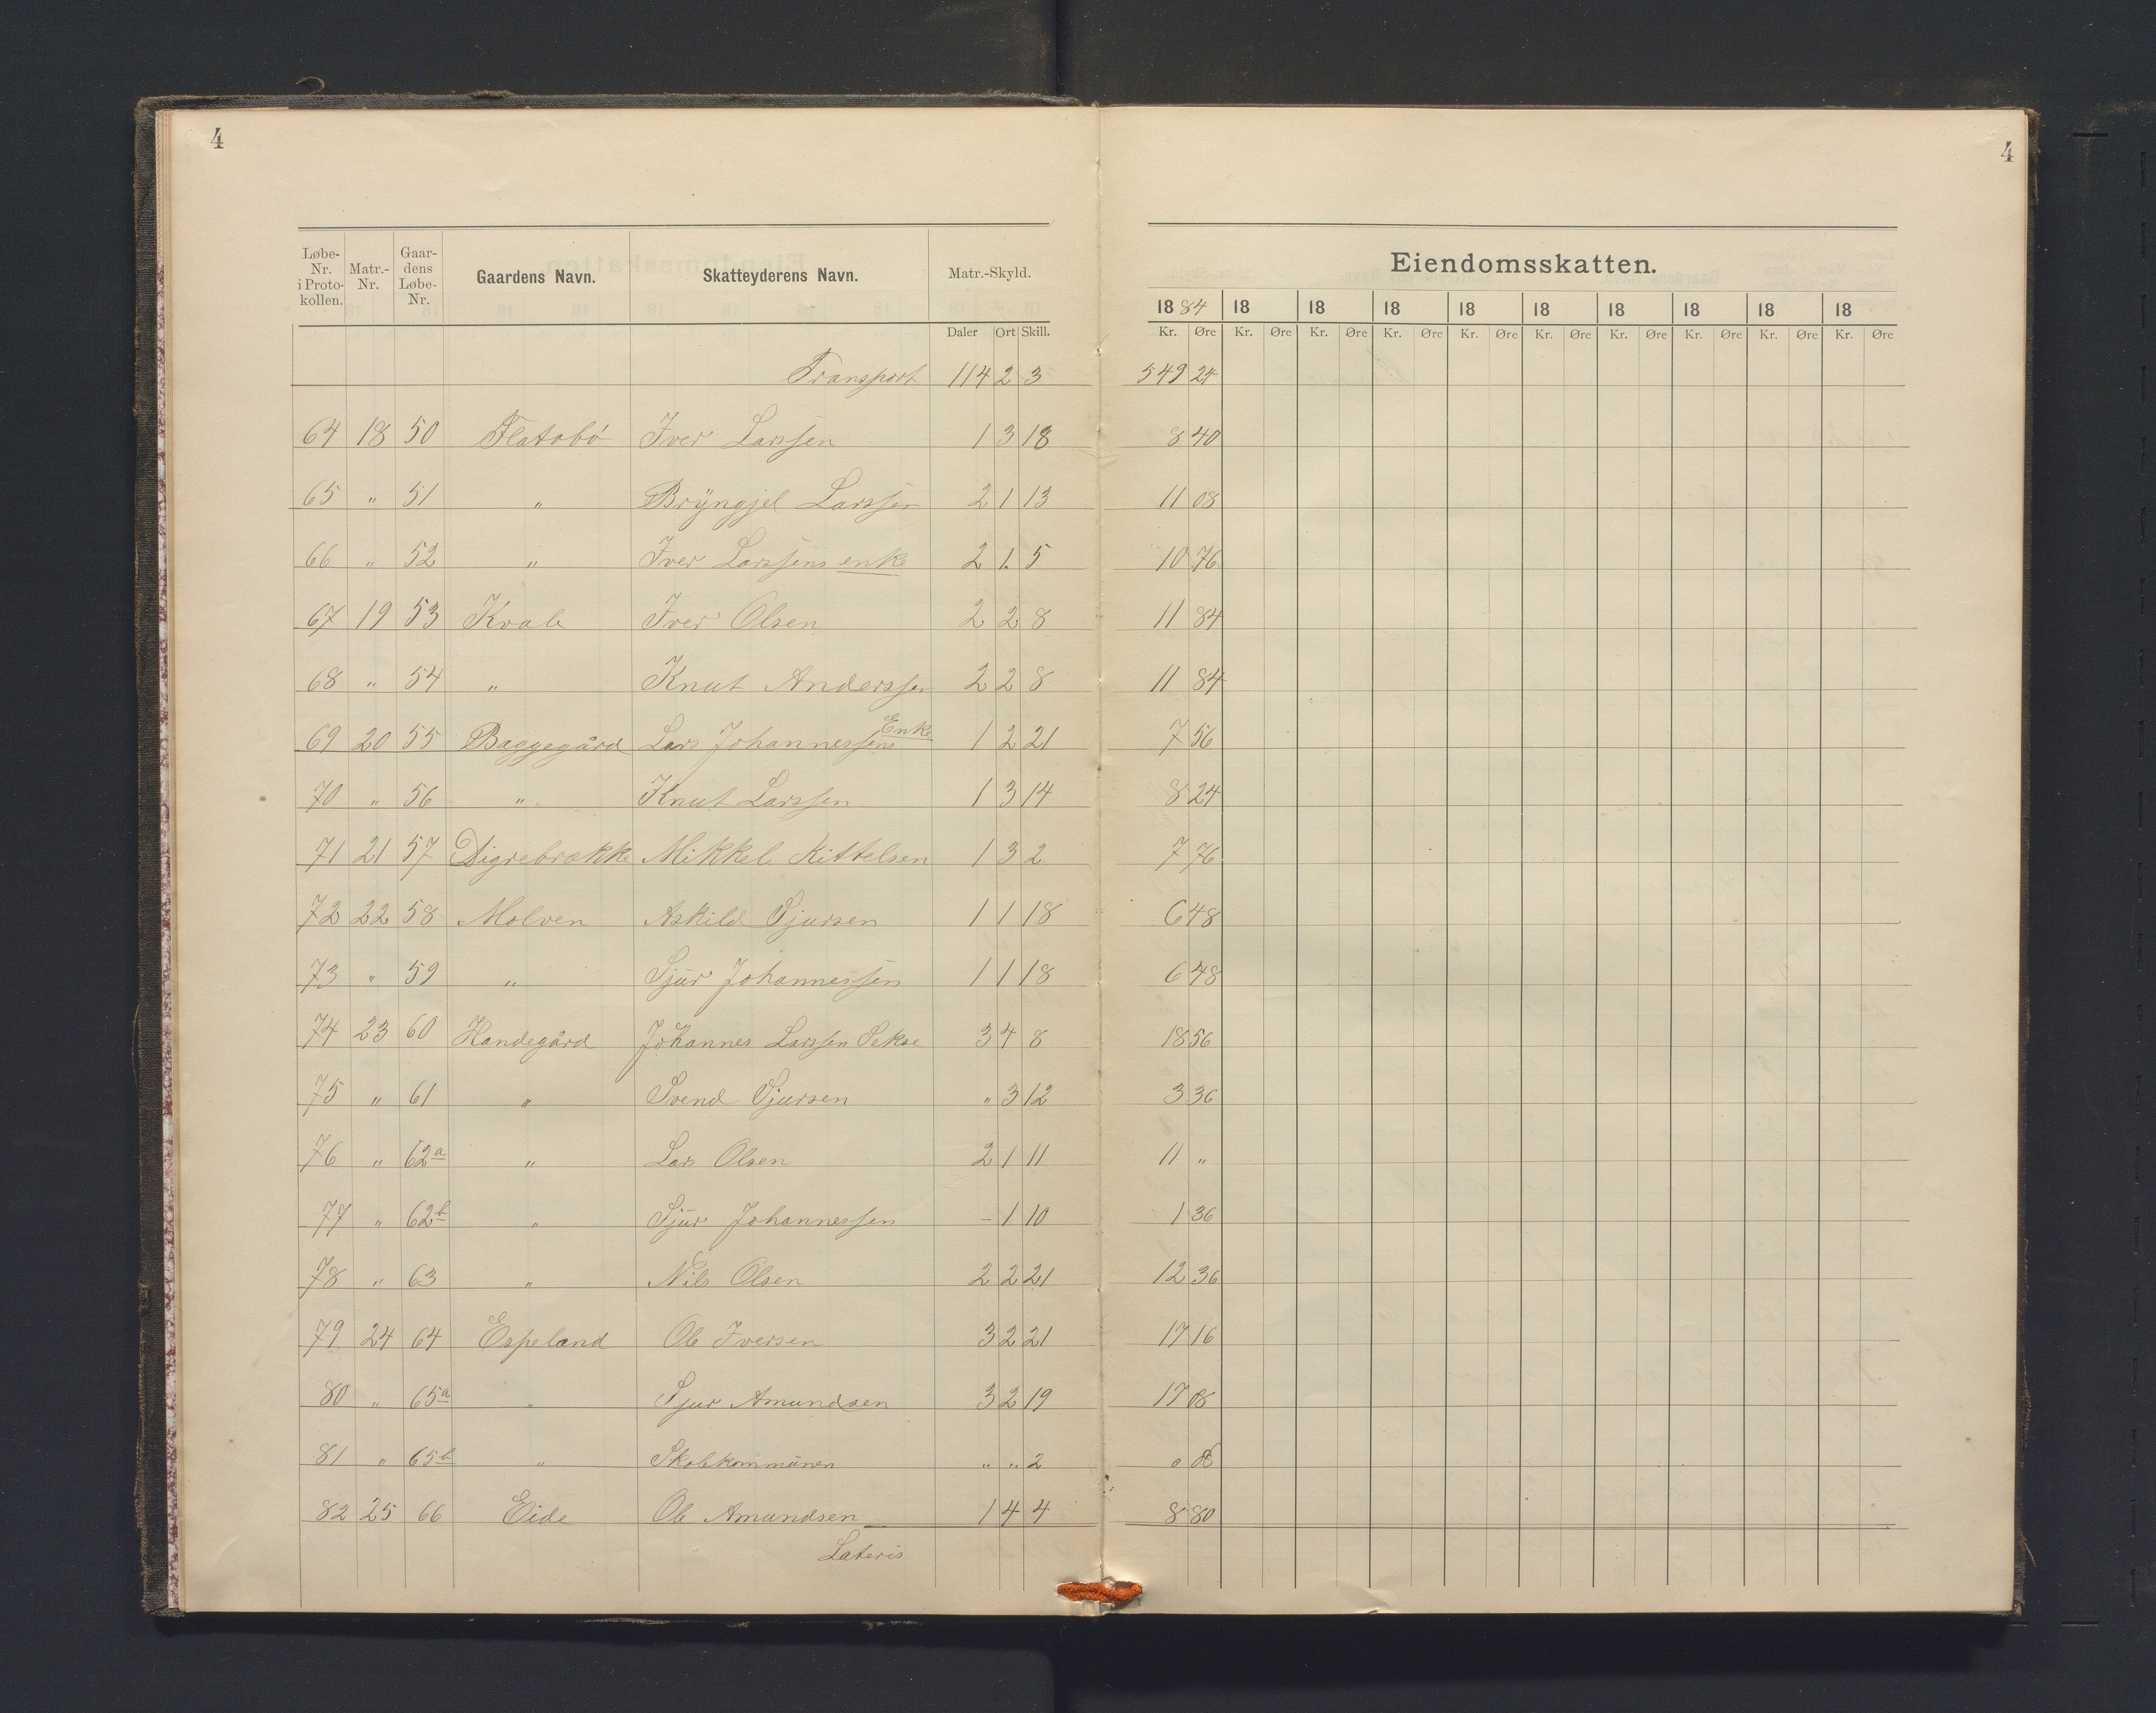 4
4
Løbe-Nr. i Proto-kollen. Matr.-Nr. Gaar-dens Løbe-Nr. Gaardens Navn. Skatteyderens Navn. Matr.-Skyld. Eiendomsskatten.
1884 18 18 18 18 18 18 18 18 18
Daler Ort Skill. Kr. Øre Kr. Øre Kr. Øre Kr. Øre Kr. Øre Kr. Øre Kr. Øre Kr. Øre Kr. Øre Kr. Øre
Transport 114 2 3 549 24
64 18 50 Flatabø Iver Larssen 1 3 18 8 40
65 " 51 " Brÿngjel Larssen 2 1 13 11 08
66 " 52 " Iver Larssens enke 2 1. 5 10 76
67 19 53 Kvale Iver Olsen 2 2 8 11 84
68 " 54 " Knut Anderssen 2 2 8 11 84
69 20 55 Baggegård Lars Johannessens Enke 1 2 21 7 56
70 " 56 " Knut Larssen 1 3 14 8 24
71 21 57 Digrebrække Mikkel Kittelsen 1 3 2 7 76
72 22 58 Molven Askild Sjursen 1 1 18 6 48
73 " 59 " Sjur Johannessen 1 1 18 6 48
74 23 60 Handegård Johannes Larssen Sekse 3 4 8 18 56
75 " 61 " Svend Sjursen " 3 12 3 36
76 " 62a " Lars Olsen 2 1 11 11 "
77 " 62b " Sjur Johannessen - 1 10 1 36
78 " 63 " Nils Olsen 2 2 21 12 36
79 24 64 Espeland Ole Iversen 3 2 21 17 16
80 " 65a " Sjur Amundsen 3 2 19 17 08
81 " 65b " Skolekommunen " " 2 0
82 25 66 Eide Ole Amundsen 1 4 4 8 80
Lateris